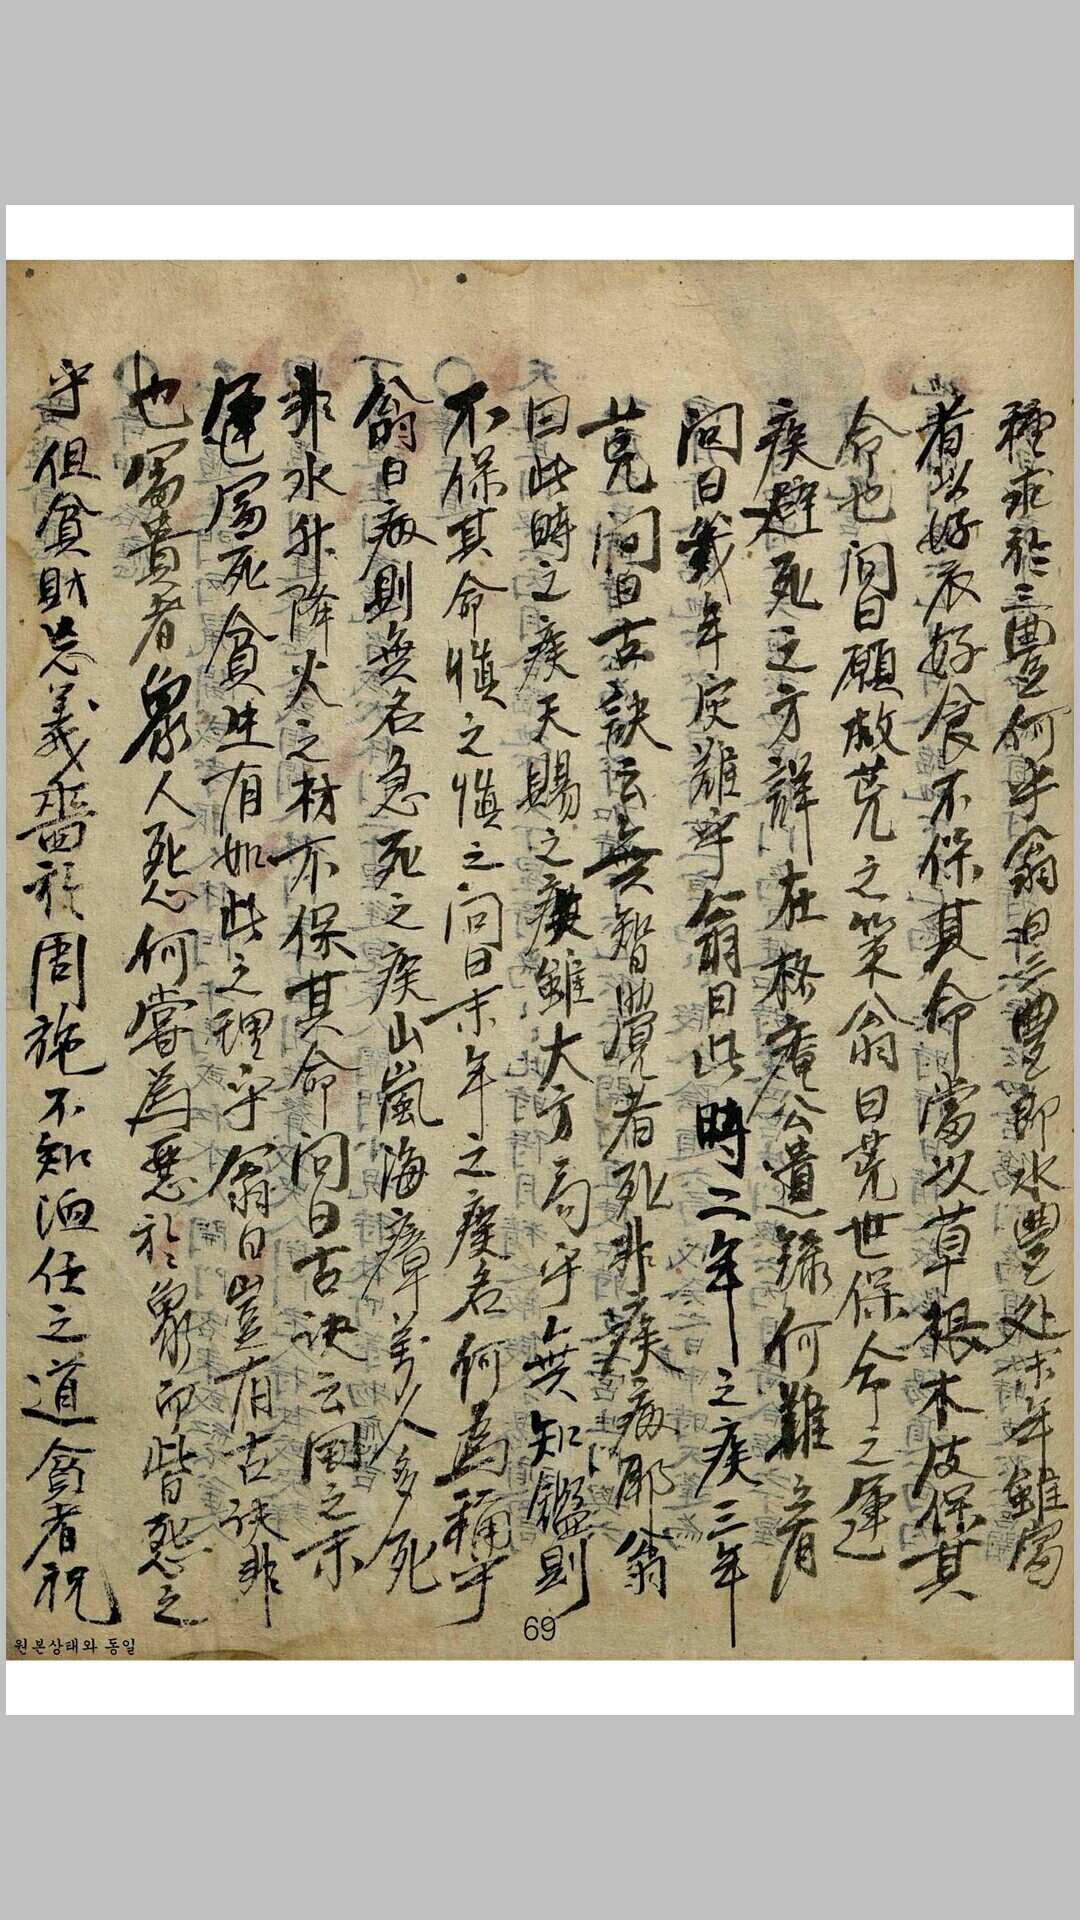 種求於三豊何乎翁曰三豊即水豊処末年雖富
者以好衣好食不保其命當以草根木皮保其
命也問曰願救荒之策翁曰荒世保命之運
疾避死之方詳在格庵公遺錄何難之有
問曰幾年灾難乎翁曰此時二年之疾三年
荒問曰古訣云無智覺者死非疾病耶翁
曰此時之疾天賜之疾雖大方局乎無知鑑則
不保其命慎之慎之問曰末年之疾名何為稱乎
翁曰病則無名急死之疾山嵐海瘴万人多死
非水升降火之材不保其命問曰古訣云国之末
運富死貧生有如此之理乎翁曰豈有古訣非
也富貴者衆人死心何嘗為惡於衆而皆死之
乎但貪財忘義嗇於周施不知恤任之道貧者祝
69
원본상태와 동일